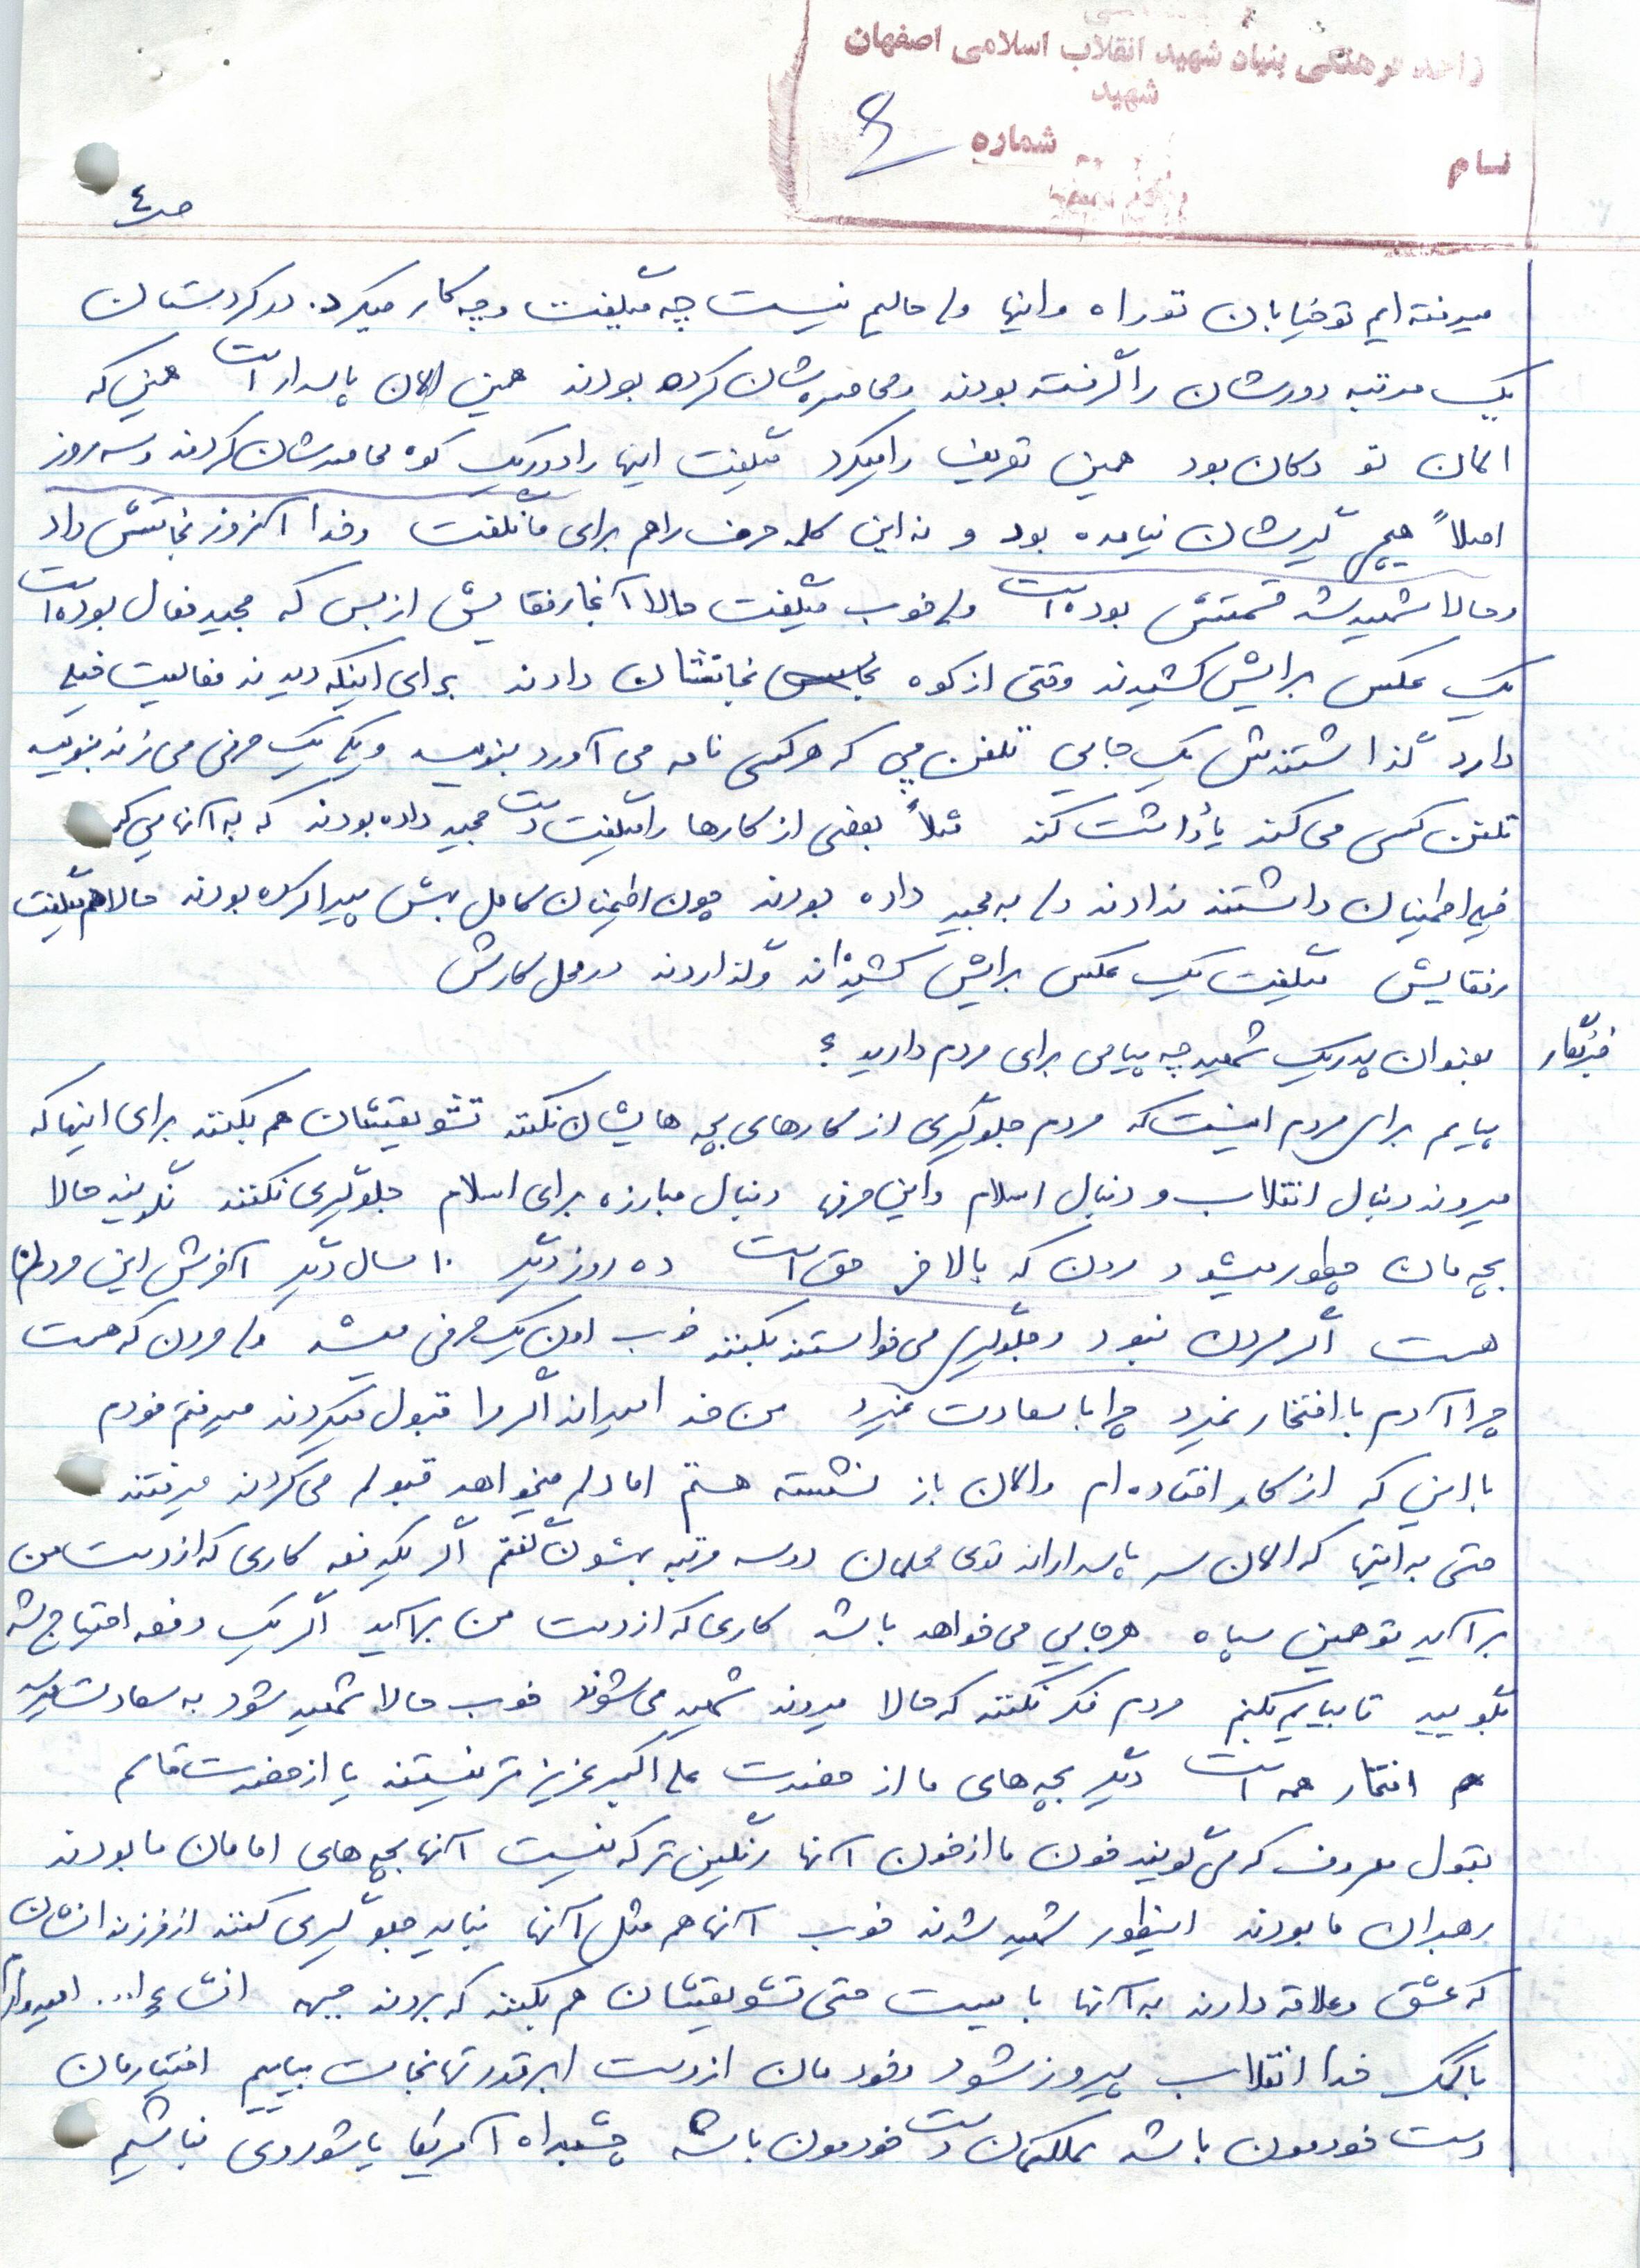 واحد فرهنگی بنیاد شهید انقلاب اسلامی اصفهان
شهید
نام
شماره
ص ٤
میرفته ایم تو خیابان تو راه و اینها ولی حالیم نیست چه میگفت و چه کار میکرد. در کردستان
یک مرتبه دورشان را گرفته بودند و محاصره شان کرده بودند همین الان پاسدار است همینی که
الان تو دکان بود همین تعریف را میکرد میگفت اینها را دور یک کوه محاصرشان کردند و سه روز
اصلاً هیچی گیرشان نیامده بود و نه این کلمه حرف را هم برای ما نگفت و خدا آنروز نجاتش داد
و حالا شهید شد قسمتش بوده است ولی خوب میگفت حالا آنجا رفقایش از بس که مجید فعال بوده است
یک عکس برایش کشیدند وقتی از کوه نجاتشان دادند برای اینکه دیدند فعالیت خیلی
دارد گذاشتندش یک جایی تلفن چی که هرکسی نامه می آورد بنویسه و یکی یک حرفی می زند بنویسه
تلفن کسی می کند یادداشت کند مثلاً بعضی از کارها را میگفت دست مجید داده بودند که به آنها یی که
خیلی اطمینان داشتند ندادند ولی به مجید داده بودند چون اطمینان کامل بهش پیدا کرده بودند حالا هم میگفت
رفقایش میگفت یک عکس برایش کشیده اند و گذاردند در محل کارش
خبرنگار بعنوان پدر یک شهید چه پیامی برای مردم دارید ؟
پیایم برای مردم اینست که مردم جلوگیری از کارهای بچه هایشان نکنند تشویقشان هم بکنند برای اینها که
میروند دنبال انقلاب و دنبال اسلام و این حرفها دنبال مبارزه برای اسلام جلوگیری نکنند نگویند حالا
بچه مان چطور میشود مردن که بالاخره حق است ده روز دیگر ۱۰ سال دیگر آخرش این مردن
هست اگر مردن نبود و جلوگیری می خواستند بکنند خوب اون یک حرفی میشد ولی مردن که هست
چرا آدم با افتخار نمیرد چرا با سعادت نمیرد من خدا میداند اگر مرا قبول میکردند میرفتم خودم
با اینی که از کار افتاده ام و الان باز نشسته هستم اما دلم میخواهد قبولم می کردند میرفتند
حتی به اینها که الان سر پاسداراند توی محلمان دو سه مرتبه بهشون گفتم اگر یکدفعه کاری که از دست من
برآید تو همین سپاه هرجایی می خواهد باشد کاری که از دست من برآید اگر یک دفعه احتیاج شد
بگویید تا بیایم بکنم مردم فکر نکنند که حالا میروند شهید می شوند خوب حالا شهید شود به سعادت میرسد
افتخار همه است دیگر بچه های ما از حضرت علی اکبر عزیز تر نیستند یا از حضرت قاسم
بقول معروف که می گویند خون ما از خون آنها رنگین تر که نیست آنها بچه های امامان ما بودند
رهبران ما بودند اینطور شهید شدند خوب آنها هم مثل آنها نباید جلوگیری کنند از فرزندانشان
که عشق و علاقه دارند به آنها بایست حتی تشویقشان هم بکنند که بروند جبهه انشاءا... امیدوارم
با کمک خدا انقلاب پیروز شود و خودمان از دست ابرقدرتها نجات بیابیم اختیارمان
دست خودمون باشد مملکتمان دست خودمون باشه چشمبراه آمریکا یا شوروی نباشیم